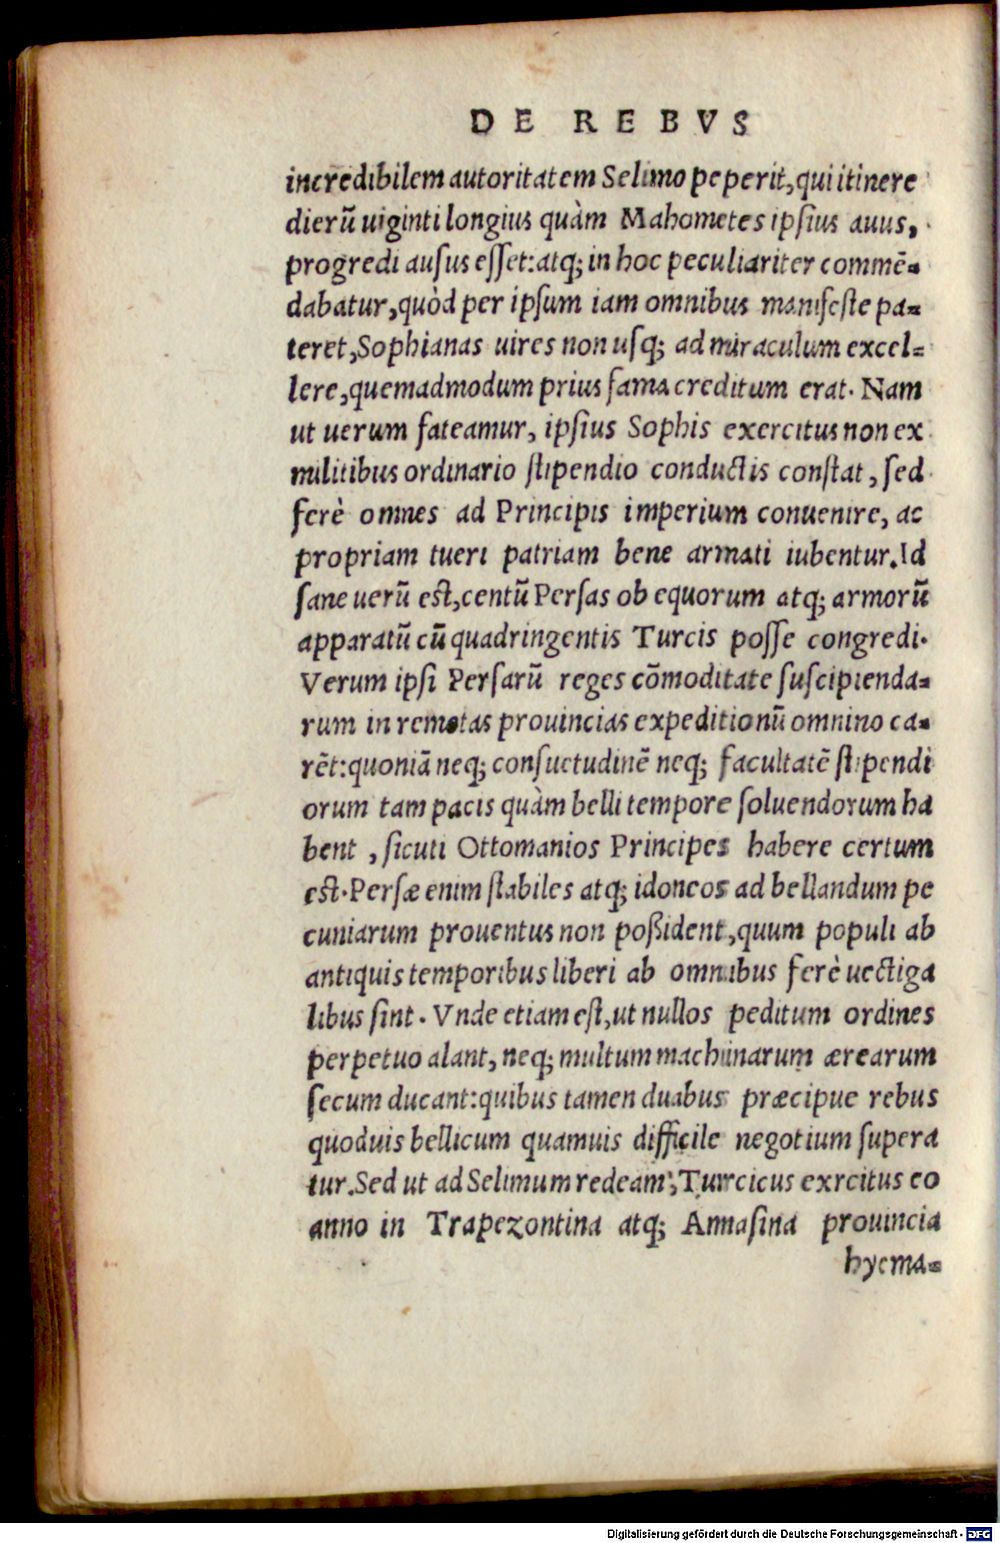 DE REBVS
incredibilem autoritatem Selimo peperit, qui itinere
dierū uiginti longius quàm Mahometes ipsius auus,
progredi ausus esset: atq; in hoc peculiariter commē=
dabatur, quòd per ipsum iam omnibus manifeste pa=
teret, Sophianas uires non usq; ad miraculum excel=
lere, quemadmodum prius fama creditum erat. Nam
ut uerum fateamur, ipsius Sophis exercitus non ex
militibus ordinario stipendio conductis constat, sed
ferè omnes ad Principis imperium conuenire, ac
propriam tueri patriam bene armati iubentur. Id
sane uerū est, centū Persas ob equorum atq; armorū
apparatū cū quadringentis Turcis posse congredi.
Verum ipsi Persarū reges cōmoditate suscipienda=
rum in remotas prouincias expeditionū omnino ca=
rēt: quoniā neq; consuetudinē neq; facultatē stipendi
orum tam pacis quàm belli tempore soluendorum ha
bent, sicuti Ottomanios Principes habere certum
est. Persæ enim stabiles atq; idoneos ad bellandum pe
cuniarum prouentus non poßident, quum populi ab
antiquis temporibus liberi ab omnibus ferè uectiga
libus sint. Vnde etiam est, ut nullos peditum ordines
perpetuo alant, neq; multum machinarum ærearum
secum ducant: quibus tamen duabus præcipue rebus
quoduis bellicum quamuis difficile negotium supera
tur. Sed ut ad Selimum redeam, Turcicus exrcitus eo
anno in Trapezontina atq; Amasina prouincia
hyema=
Digitalisierung gefördert durch die Deutsche Forschungsgemeinschaft - DFG